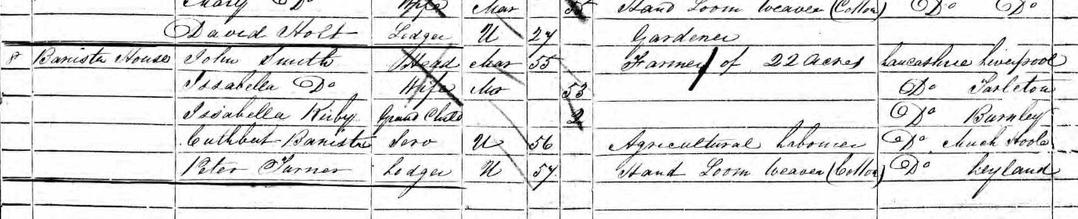 Mary Do Wife Mar 55 Hand Loom Weaver (Cotton) Do Do
David Holt Lodger U 27 Gardener
Baniste House John Smith Head Mar 55 Farmer of 22 Acres Lancashire Liverpool
Issabella Do Wife Mar 53 Do Tarleton
Issabella Kirby Grand Child 2 Do Burnley
Cuthbut Banistre Serv U 56 Agricultural Labourer Do Much Hoole
Peter Turner Lodger U 57 Hand Loom Weaver (Cotton) Do Leyland